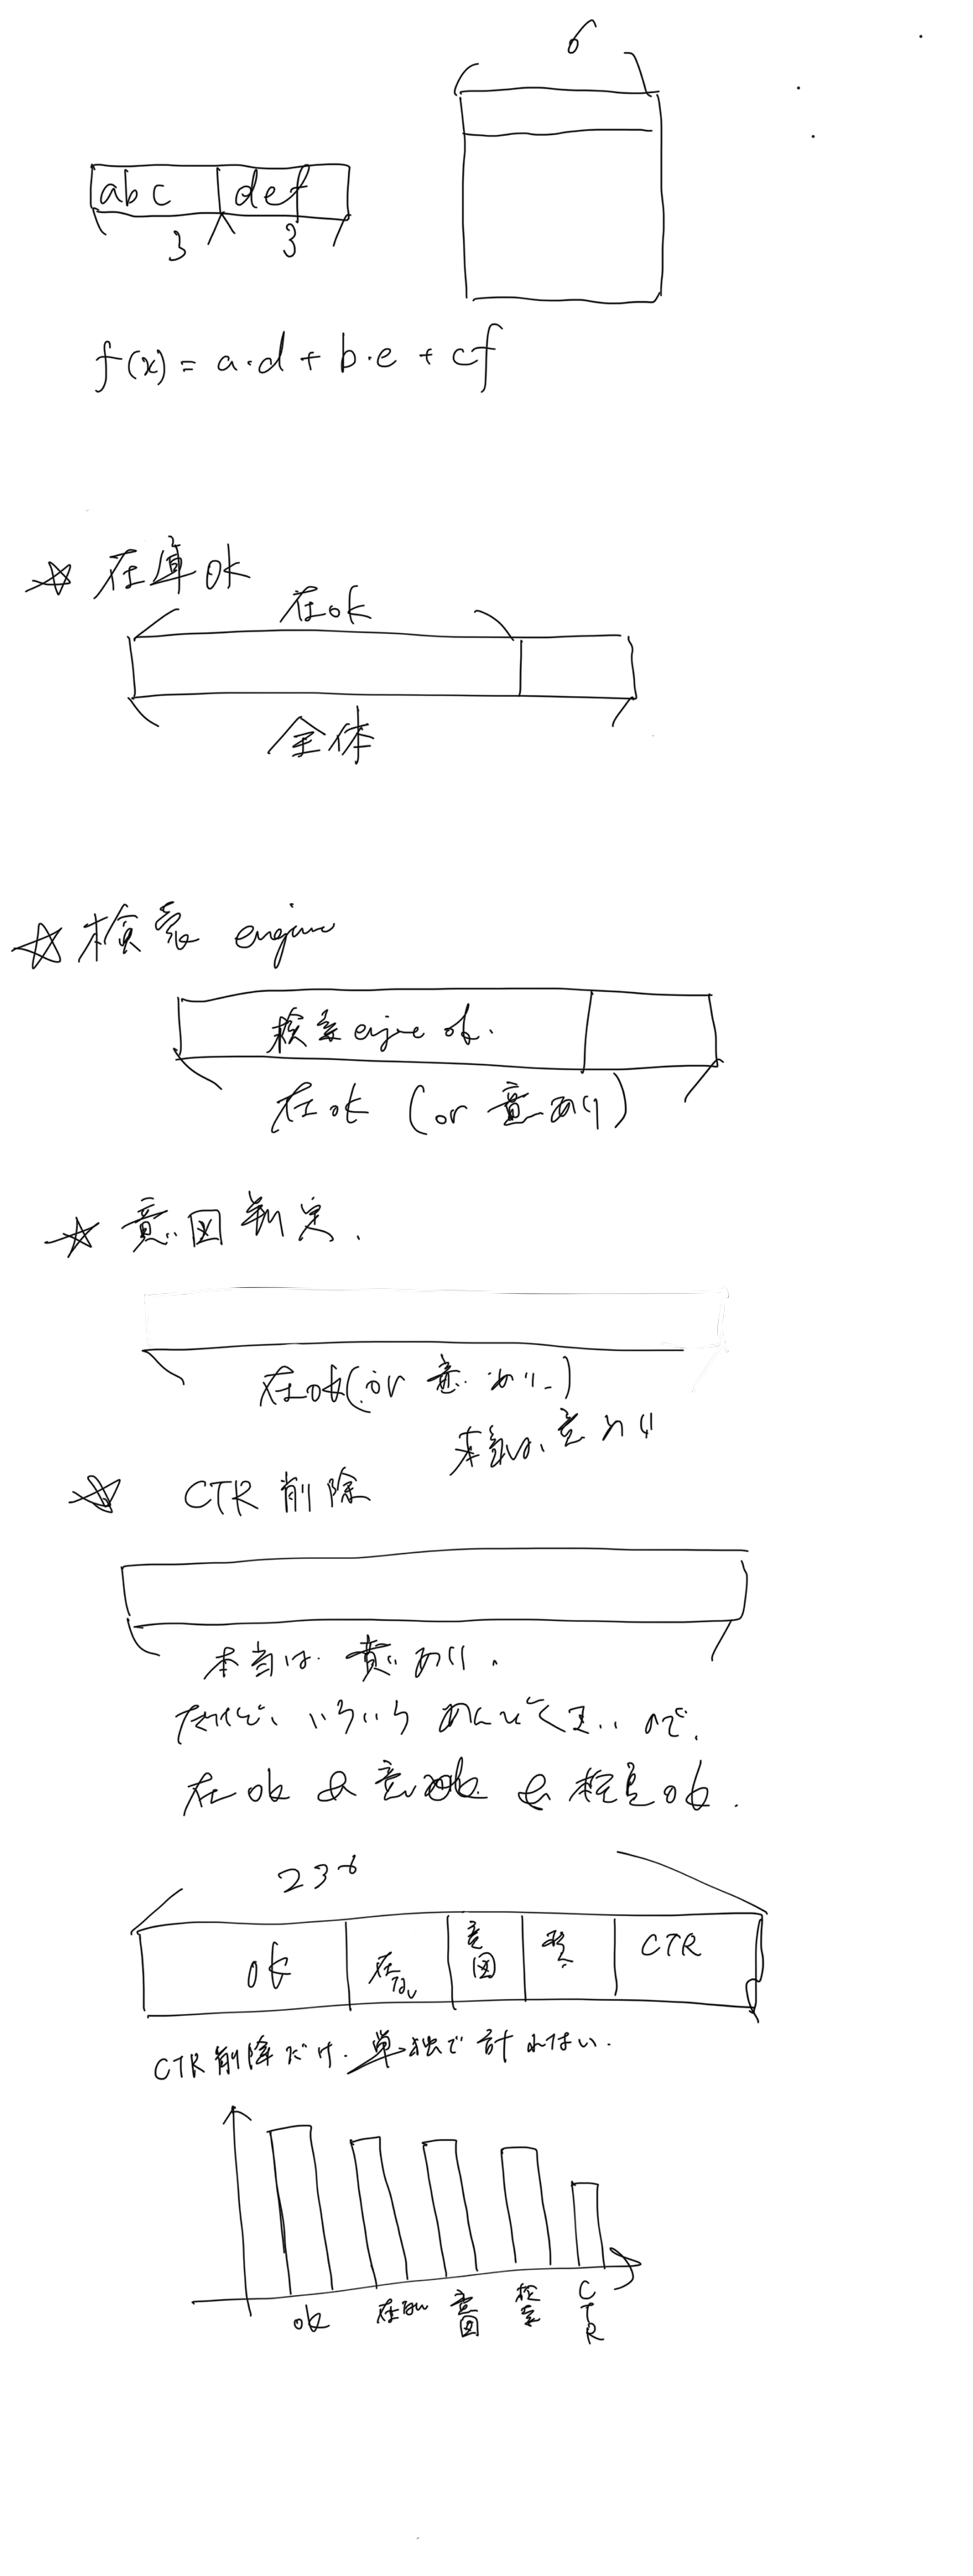 6
abc def
3 3
f(x) = a·d + b·e + cf
☆ 在庫ok
在ok
全体
☆ 検索 engine
検索 engine ok.
在ok (or 意あり)
☆ 意図判定.
在ok(or 意あり)
本当は、意あり
☆ CTR 削除
本当は 意あり.
だけど、いろいろ めんどくさいので.
在ok & 意図ok & 検索ok.
ok 在ない 意図 検 CTR
CTR削除だけ. 単独で 計れない.
ok 在ない 意図 検索 CTR